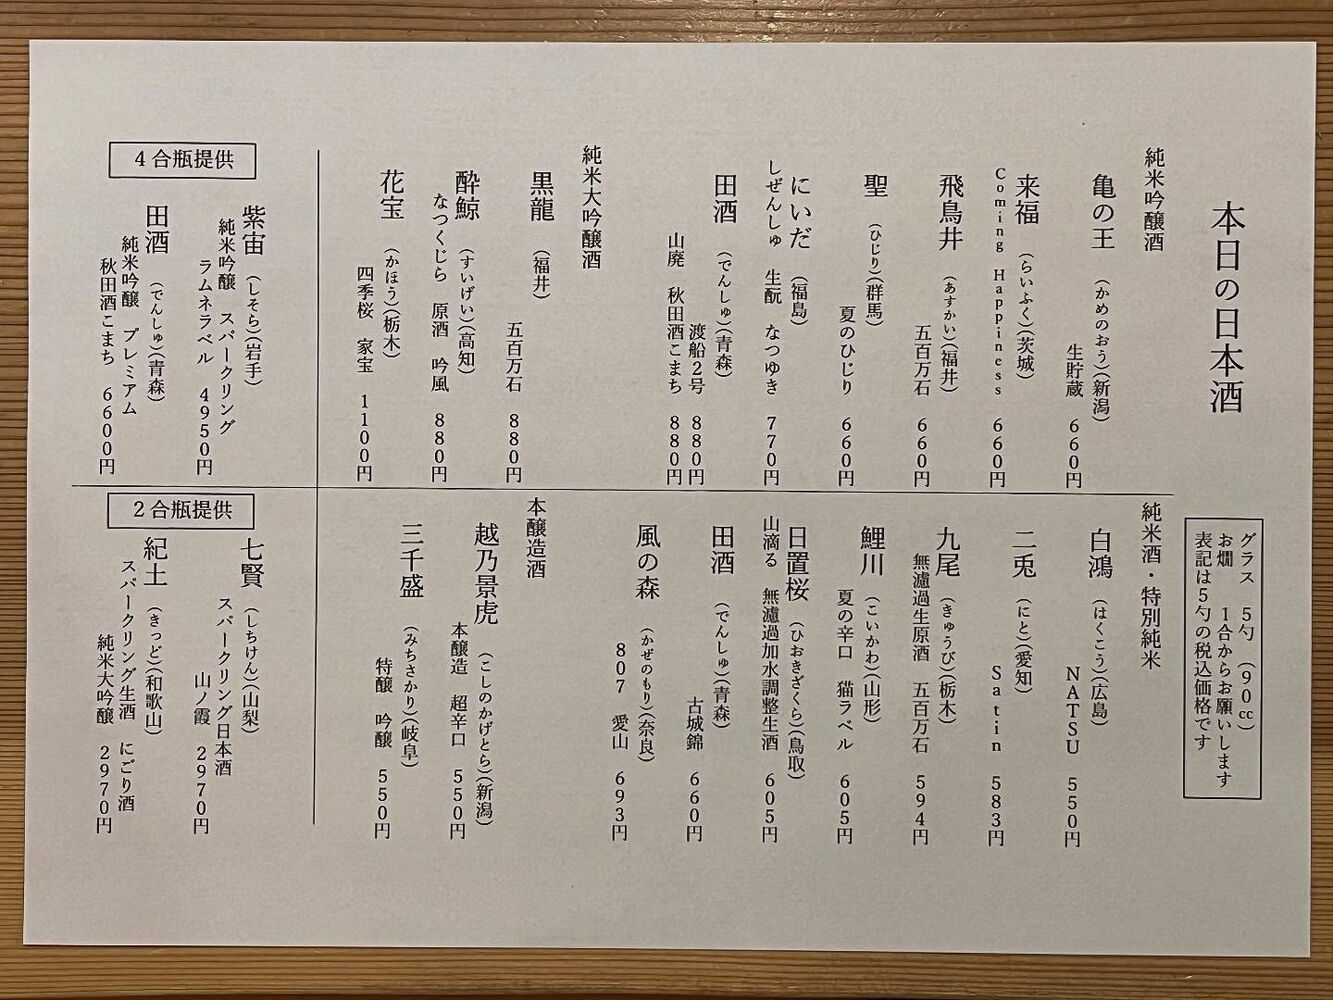 本日の日本酒
グラス　5勺　(90㏄)
お燗　1合からお願いします
表記は5勺の税込価格です
純米吟醸酒
亀の王　(かめのおう)(新潟)
生貯蔵　660円
来福　(らいふく)(茨城)
Coming Happiness　660円
飛鳥井　(あすかい)(福井)
五百万石　660円
聖　(ひじり)(群馬)
夏のひじり　660円
にいだ　(福島)
しぜんしゅ　生酛　なつゆき　770円
田酒　(でんしゅ)(青森)
渡船2号　880円
山廃　秋田酒こまち　880円
純米大吟醸酒
黒龍　(福井)
五百万石　880円
酔鯨　(すいげい)(高知)
なつくじら　原酒　吟風　880円
花宝　(かほう)(栃木)
四季桜　家宝　1100円
純米酒・特別純米
白鴻　(はくこう)(広島)
NATSU　550円
二兎　(にと)(愛知)
Satin　583円
九尾　(きゅうび)(栃木)
無濾過生原酒　五百万石　594円
鯉川　(こいかわ)(山形)
夏の辛口　猫ラベル　605円
日置桜　(ひおきざくら)(鳥取)
山滴る　無濾過加水調整生酒　605円
田酒　(でんしゅ)(青森)
古城錦　660円
風の森　(かぜのもり)(奈良)
807　愛山　693円
本醸造酒
越乃景虎　(こしのかげとら)(新潟)
本醸造　超辛口　550円
三千盛　(みちさかり)(岐阜)
特醸　吟醸　550円
4合瓶提供
紫宙　(しそら)(岩手)
純米吟醸　スパークリング
ラムネラベル　4950円
田酒　(でんしゅ)(青森)
純米吟醸　プレミアム
秋田酒こまち　6600円
2合瓶提供
七賢　(しちけん)(山梨)
スパークリング日本酒
山ノ霞　2970円
紀土　(きっど)(和歌山)
スパークリング生酒　にごり酒
純米大吟醸　2970円